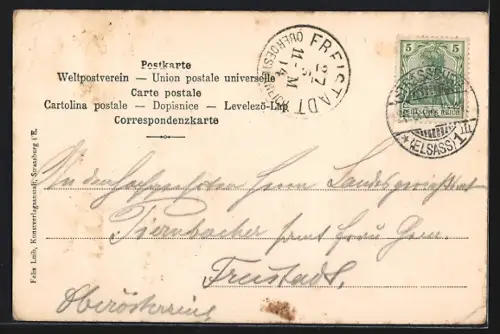 Postkarte
Weltpostverein – Union postale universelle
Carte postale
Cartolina postale – Dopisnice – Levelező-Lap
Correspondenzkarte
FREISTADT
11-M
5 5
STRASSBURG
(ELSASS) 1
DEUTSCHES REICH
Felix Luib, Kunstverlagsanstalt, Strassburg i/E.
An den Herrn Landesgerichtsrat
Tiernbacher samt Frau Gem.
Freistadt,
Oberösterreich